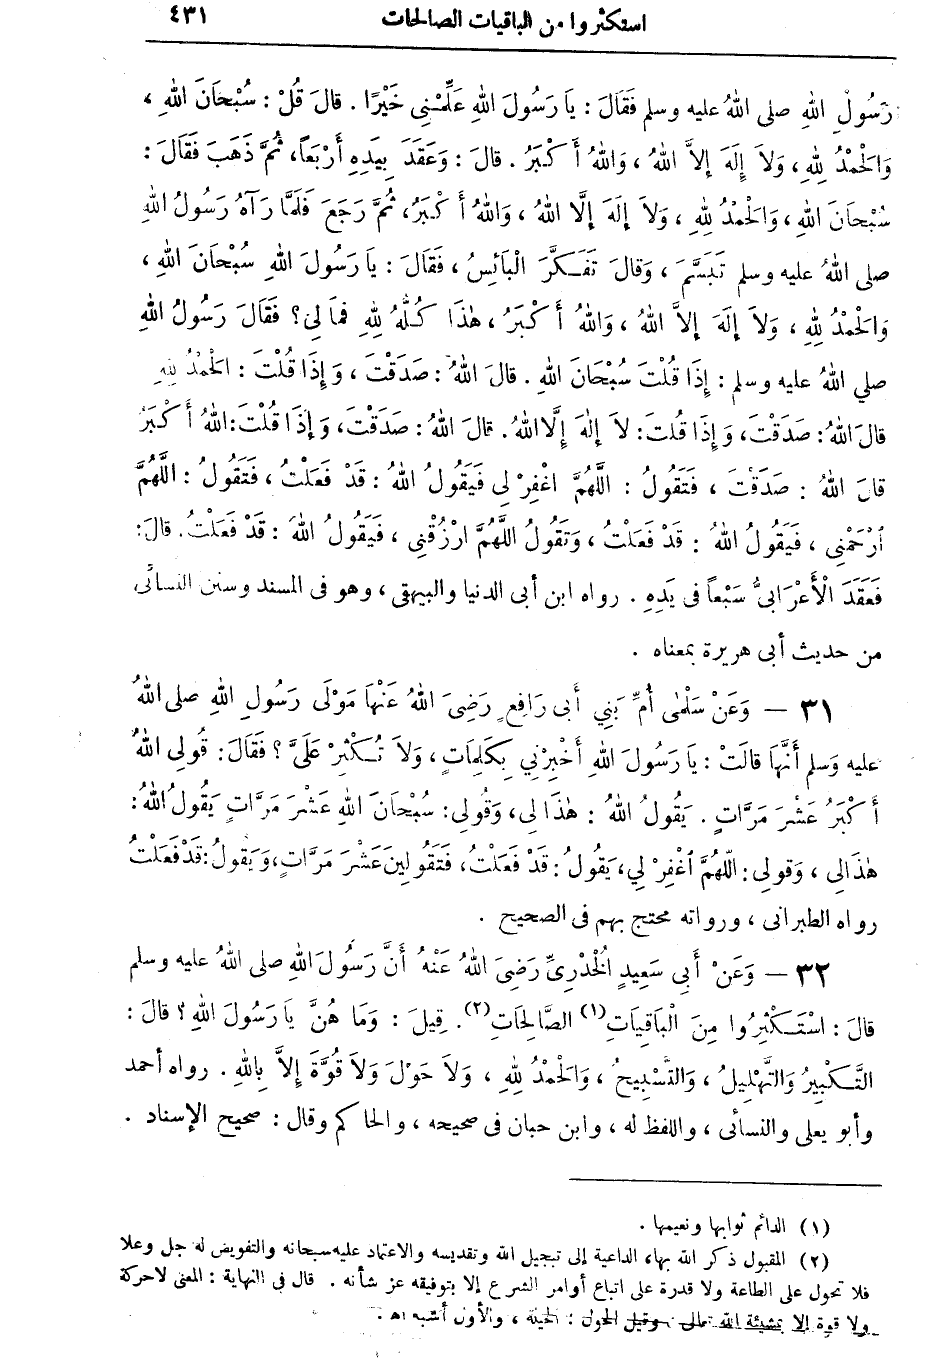 استكثروا من الباقيات الصالحات ٤٣١
رَسُولَ اللهِ صلى اللهُ عليه وسلم فَقَالَ : يَا رَسُولَ اللهِ عَلِّمْنِي خَيْرًا . قالَ قُلْ : سُبْحَانَ اللهِ ،
وَالْحَمْدُ لِلهِ ، وَلاَ إِلَهَ إِلاَّ اللهُ ، وَاللهُ أَكْبَرُ . قالَ : وَعَقَدَ بِيَدِهِ أَرْبَعاً، ثُمَّ ذَهَبَ فَقَالَ :
سُبْحَانَ اللهِ ، وَالْحَمْدُ لِلهِ ، وَلاَ إِلَهَ إِلَّا اللهُ ، وَاللهُ أَكْبَرُ، ثُمَّ رَجَعَ فَلَمَّا رَآهُ رَسُولُ اللهِ
صلى اللهُ عليه وسلم تَبَسَّمَ ، وَقالَ تَفَكَّرَ الْبَائِسُ ، فَقَالَ : يا رَسُولَ اللهِ سُبْحَانَ اللهِ ،
وَالْحَمْدُ لِلهِ ، وَلاَ إِلَهَ إِلاَّ اللهُ ، وَاللهُ أَكْبَرُ ، هٰذَا كُلُّهُ لِلهِ فَمَا لِي ؟ فَقَالَ رَسُولُ اللهِ
صلى اللهُ عليه وسلم : إِذَا قُلْتَ سُبْحَانَ اللهِ . قالَ اللهُ : صَدَقْتَ ، وَإِذَا قُلْتَ : الْحَمْدُ لِلهِ
قالَ اللهُ : صَدَقْتَ، وَإِذَا قُلتَ : لاَ إِلٰهَ إِلَّا اللهُ. قالَ اللهُ : صَدَقْتَ، وَإِذَا قُلْتَ: اللهُ أَكْبَرُ
قالَ اللهُ : صَدَقْتَ ، فَتَقُولُ : اللَّهُمَّ اغْفِرْ لِي فَيَقُولُ اللهُ : قَدْ فَعَلْتُ ، فَتَقُولُ : اللَّهُمَّ
ارْحَمْنِي ، فَيَقُولُ اللهُ : قَدْ فَعَلْتُ ، وَتَقُولُ اللَّهُمَّ ارْزُقْنِي ، فَيَقُولُ اللهُ : قَدْ فَعَلْتُ. قالَ:
فَعَقَدَ الْأَعْرَابِىُّ سَبْعاً فى يَدِهِ . رواه ابن أبى الدنيا والبيهقى ، وهو فى المسند وسنن النسائى
من حديث أبى هريرة بمعناه .
٣١ – وَعَنْ سَلْمَى أُمِّ بَنِي أَبى رَافِعٍ رَضِىَ اللهُ عَنْهَا مَوْلَى رَسُولِ اللهِ صلى اللهُ
عليه وَسلم أَنَّهَا قالَتْ : يا رَسُولَ اللهِ أَخْبِرْنِي بِكَلِمَاتٍ، وَلاَ تُكْثِرْ عَلَىَّ ؟ فَقَالَ : قُولِى اللهُ
أَكْبَرُ عَشْرَ مَرَّاتٍ . يَقُولُ اللهُ : هٰذَا لِى، وَقُولِى : سُبْحَانَ اللهِ عَشْرَ مَرَّاتٍ يَقُولُ اللهُ :
هٰذَا لِى ، وَقولى : اللّهُمَّ اغْفِرْ لِي، يَقُولُ : قَدْ فَعَلْتُ، فَتَقُولِينَ عَشْرَ مَرَّاتٍ، وَيَقُولُ: قَدْ فَعَلْتُ
رواه الطبرانى ، ورواته محتج بهم فى الصحيح .
٣٢ – وَعَنْ أَبِي سَعِيدٍ الْخُدْرِىِّ رَضِىَ اللهُ عَنْهُ أَنَّ رَسُولَ اللهِ صلى اللهُ عليه وسلم
قالَ : اسْتَكْثِرُوا مِنَ الْبَاقِيَاتِ (١) الصَّالِحَاتِ (٢). قِيلَ : وَمَا هُنَّ يَا رَسُولَ اللهِ ؟ قالَ :
التَّكْبِيرُ وَالتَّهْلِيلُ ، وَالتَّسْبِيحُ ، وَالْحَمْدُ لِلهِ ، وَلاَ حَوْلَ وَلاَ قُوَّةَ إِلاَّ بِاللهِ . رواه أحمد
وأبو يعلى والنسائى ، واللفظ له ، وابن حبان فى صحيحه ، والحاكم وقال : صحيح الإسناد .
(١) الدائم ثوابها ونعيمها .
(٢) المقبول ذكر الله بها، الداعية إلى تبجيل الله وتقديسه والاعتماد عليه سبحانه والتفويض له جل وعلا
فلا تحول على الطاعة ولا قدرة على اتباع أوامر الشرع إلا بتوفيقه عز شأنه . قال فى النهاية : المعنى لا حركة
ولا قوة إلا بمشيئة الله تعالى وقيل الحول : الحيلة ، والأول أشبه اه .